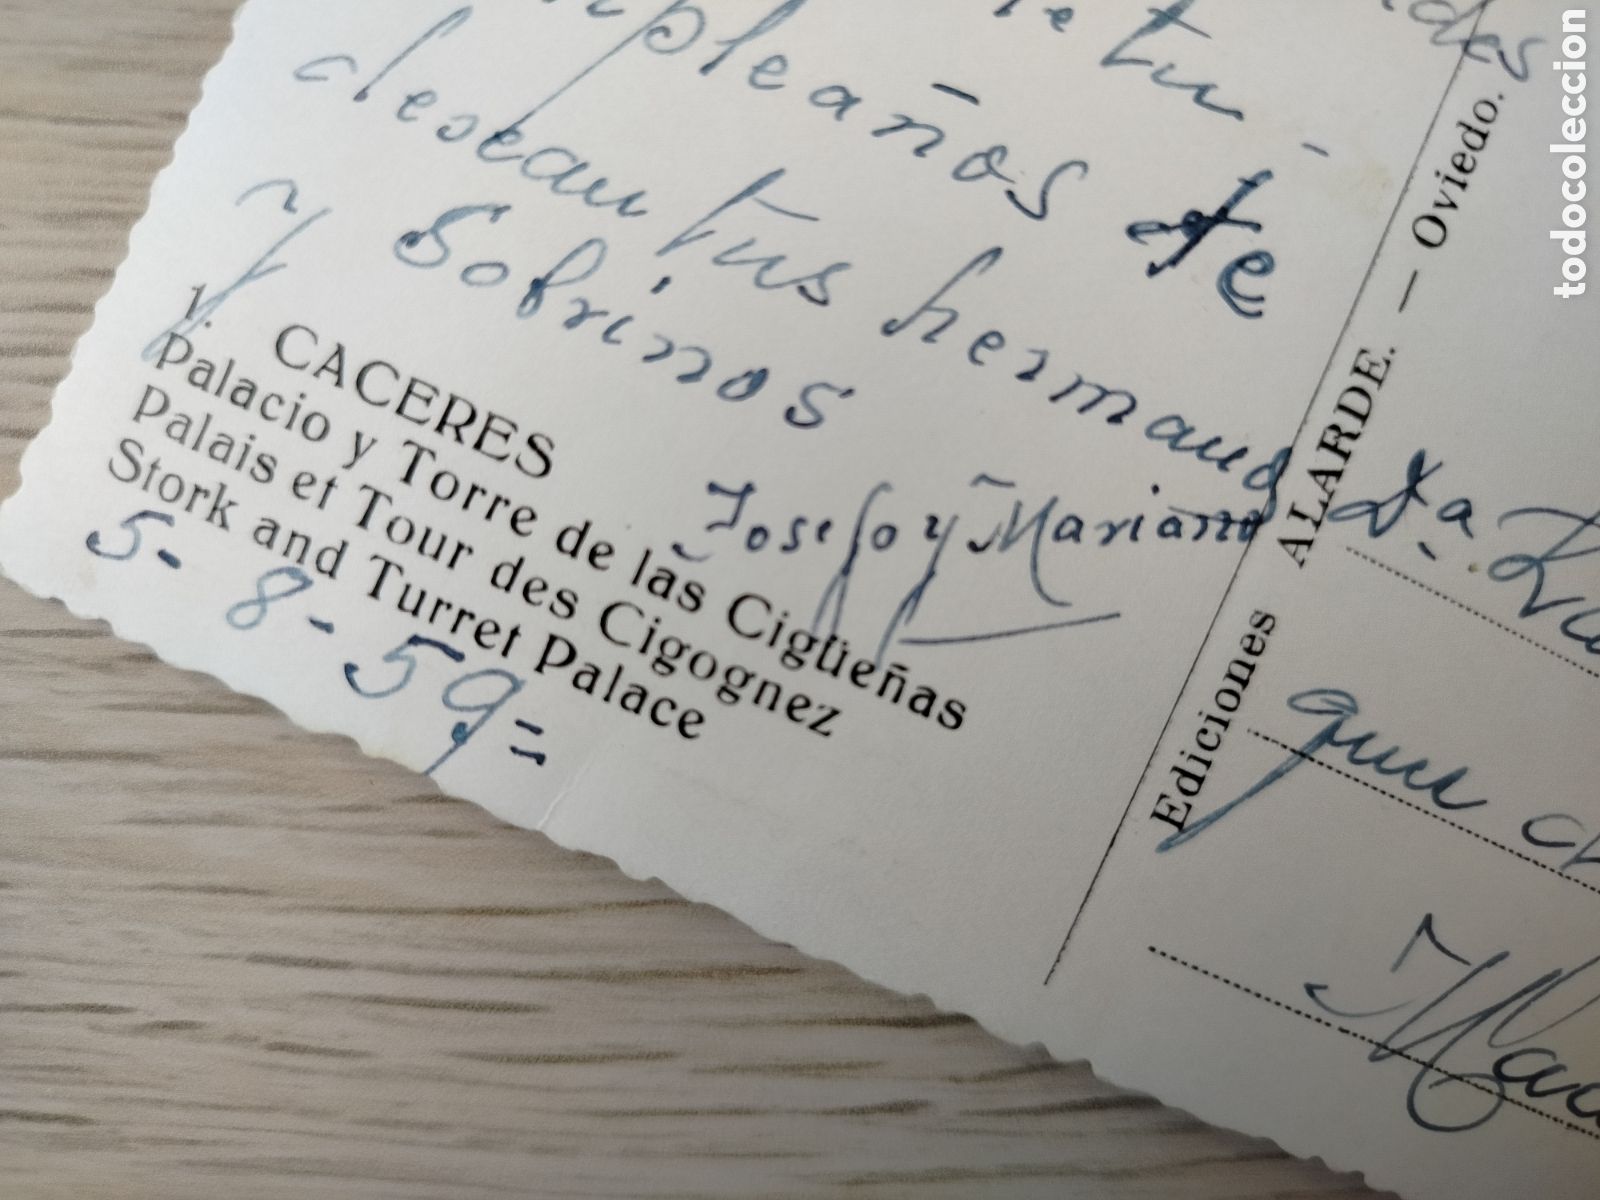 e tu
pleaños te
desean tus hermanos
y Sobrinos
Josefo y Mariano
1. CACERES
Palacio y Torre de las Cigüeñas
Palais et Tour des Cigognez
Stork and Turret Palace
5-8-59=
Ediciones ALARDE. — Oviedo.
Dª
todocoleccion